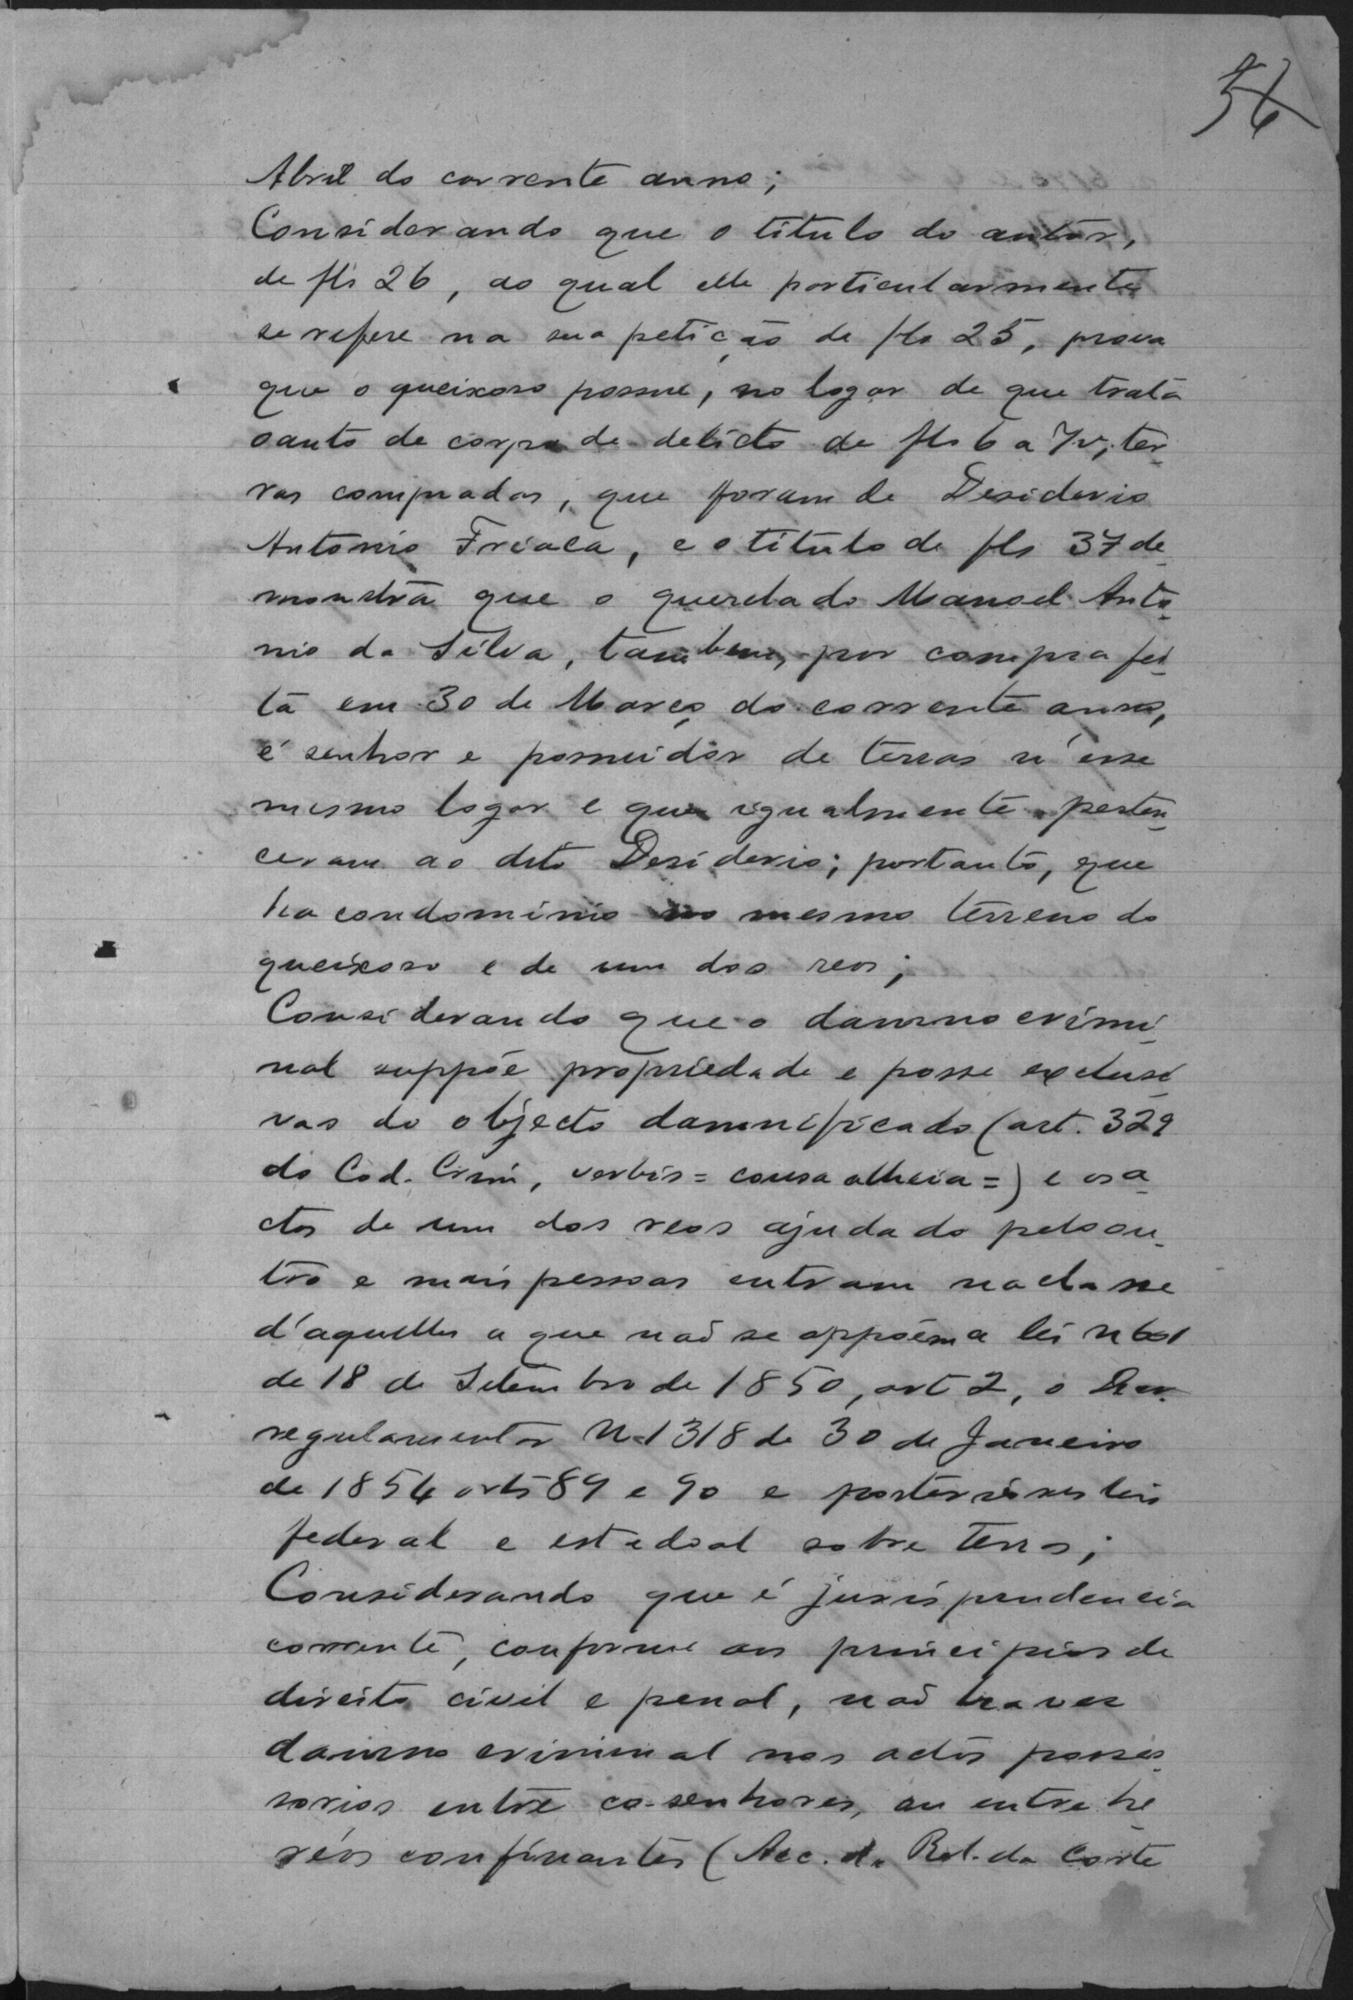 56
Abril do corrente anno;
Considerando que o titulo do autôr,
de fls 26, ao qual elle particularmente
se refere na sua petição de fls 25, prova
que o queixoso possue, no logar de que trata
o auto de corpo de delicto de fls 6 a 7v, ter-
ras compradas, que foram de Desiderio
Antonio Friaca, e o titulo de fls 37 de-
monstra que o querelado Manoel Anto-
nio da Silva, tambem, por compra fei-
ta em 30 de Março do corrente anno,
é senhor e possuidor de terras n'esse
mesmo logar e que igualmente perten-
ceram ao dito Desiderio; portanto, que
ha condominio no mesmo terreno do
queixoso e de um dos reos;
Considerando que o damno crimi-
nal suppõe propriedade e posse exclusi-
vas do objecto damnificado (art. 329
do Cod. Crim, verbis = cousa alheia =) e os a-
ctos de um dos reos ajudado pelo ou-
tro e mais pessoas entram na classe
d'aquelles a que não se oppõem a lei n 601
de 18 de Setembro de 1850, art 2, o
regulamentar N. 1318 de 30 de Janeiro
de 1854 arts 89 e 90 e posteriores leis
federal e estadoal sobre terras;
Considerando que é jurisprudencia
corrente, conforme aos principios de
direito civil e penal, não haver
damno criminal nos actos posses-
sorios entre co-senhores, ou entre he-
réos confinantes (Acc. da Rel. da Corte